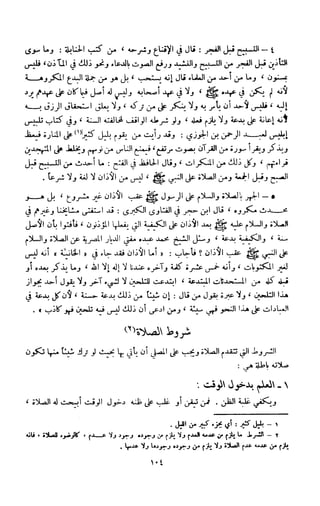 ٤ - التسبيح قبل الفجر : قال في الإقناع وشرحه ، من كتب الحنابلة : وما سوى
التأذين قبل الفجر من التسبيح والنشيد ورفع الصوت بالدعاء ونحو ذلك في المآذن ، فليس
بمسنون ، وما من أحد من العلماء قال إنه يستحب ، بل هو من جملة البدع المكروهة
لأنه لم يكن في عهده ﷺ ، ولا في عهد أصحابه وليس له أصل فيما كان على عهدهم يرد
إليه ، فليس لأحد أن يأمر به ولا ينكر على من تركه ، ولا يعلق استحقاق الرزق به
لأنه إعانة على بدعة ولا يلزم فعله ، ولو شرطه الواقف لمخالفته السنة ، وفي كتاب تلبيس
إبليس لعبد الرحمن بن الجوزي : وقد رأيت من يقوم بليل كثير(١) على المنارة فيعظ
ويذكر ويقرأ سورة من القرآن بصوت مرتفع ، فيمنع الناس من نومهم ويخلط على المتهجدين
قراءتهم ، وكل ذلك من المنكرات ، وقال الحافظ في الفتح : ما أحدث من التسبيح قبل
الصبح وقبل الجمعة ومن الصلاة على النبي ﷺ ، ليس من الأذان لا لغة ولا شرعا .
٥ - الجهر بالصلاة والسلام على الرسول ﷺ عقب الأذان غير مشروع ، بل هو
محدث مكروه ، قال ابن حجر في الفتاوى الكبرى : قد استفتى مشايخنا وغيرهم في
الصلاة والسلام عليه ﷺ بعد الأذان على الكيفية التي يفعلها المؤذنون ، فأفتوا بأن الأصل
سنة ، والكيفية بدعة ، وسئل الشيخ محمد عبده مفتي الديار المصرية عن الصلاة والسلام
على النبي ﷺ عقب الأذان ؟ فأجاب : « أما الأذان فقد جاء في « الخانية » أنه ليس
لغير المكتوبات ، وأنه خمس عشرة كلمة وآخره عندنا لا إله إلا الله ، وما يذكر بعده أو
قبله كله من المستحدثات المبتدعة ، ابتدعت للتلحين لا لشيء آخر ولا يقول أحد بجواز
هذا التلحين ، ولا عبرة بقول من قال : إن شيئا من ذلك بدعة حسنة ، لأن كل بدعة في
العبادات على هذا النحو فهي سيئة ، ومن ادعى أن ذلك ليس فيه تلحين فهو كاذب » .
شروط الصلاة(٢)
الشروط التي تتقدم الصلاة ويجب على المصلي أن يأتي بها بحيث لو ترك شيئا منها تكون
صلاته باطلة هي :
١ - العلم بدخول الوقت :
ويكفي غلبة الظن . فمن تيقن أو غلب على ظنه دخول الوقت أبيحت له الصلاة ،
١ - بليل كثير : أي بجزء كبير من الليل .
٢ - الشرط ما يلزم من عدمه العدم ولا يلزم من وجوده وجود ولا عدم ، كالوضوء للصلاة ، فإنه
يلزم من عدمه عدم الصلاة ولا يلزم من وجوده وجودها ولا عدمها .
١٠٤